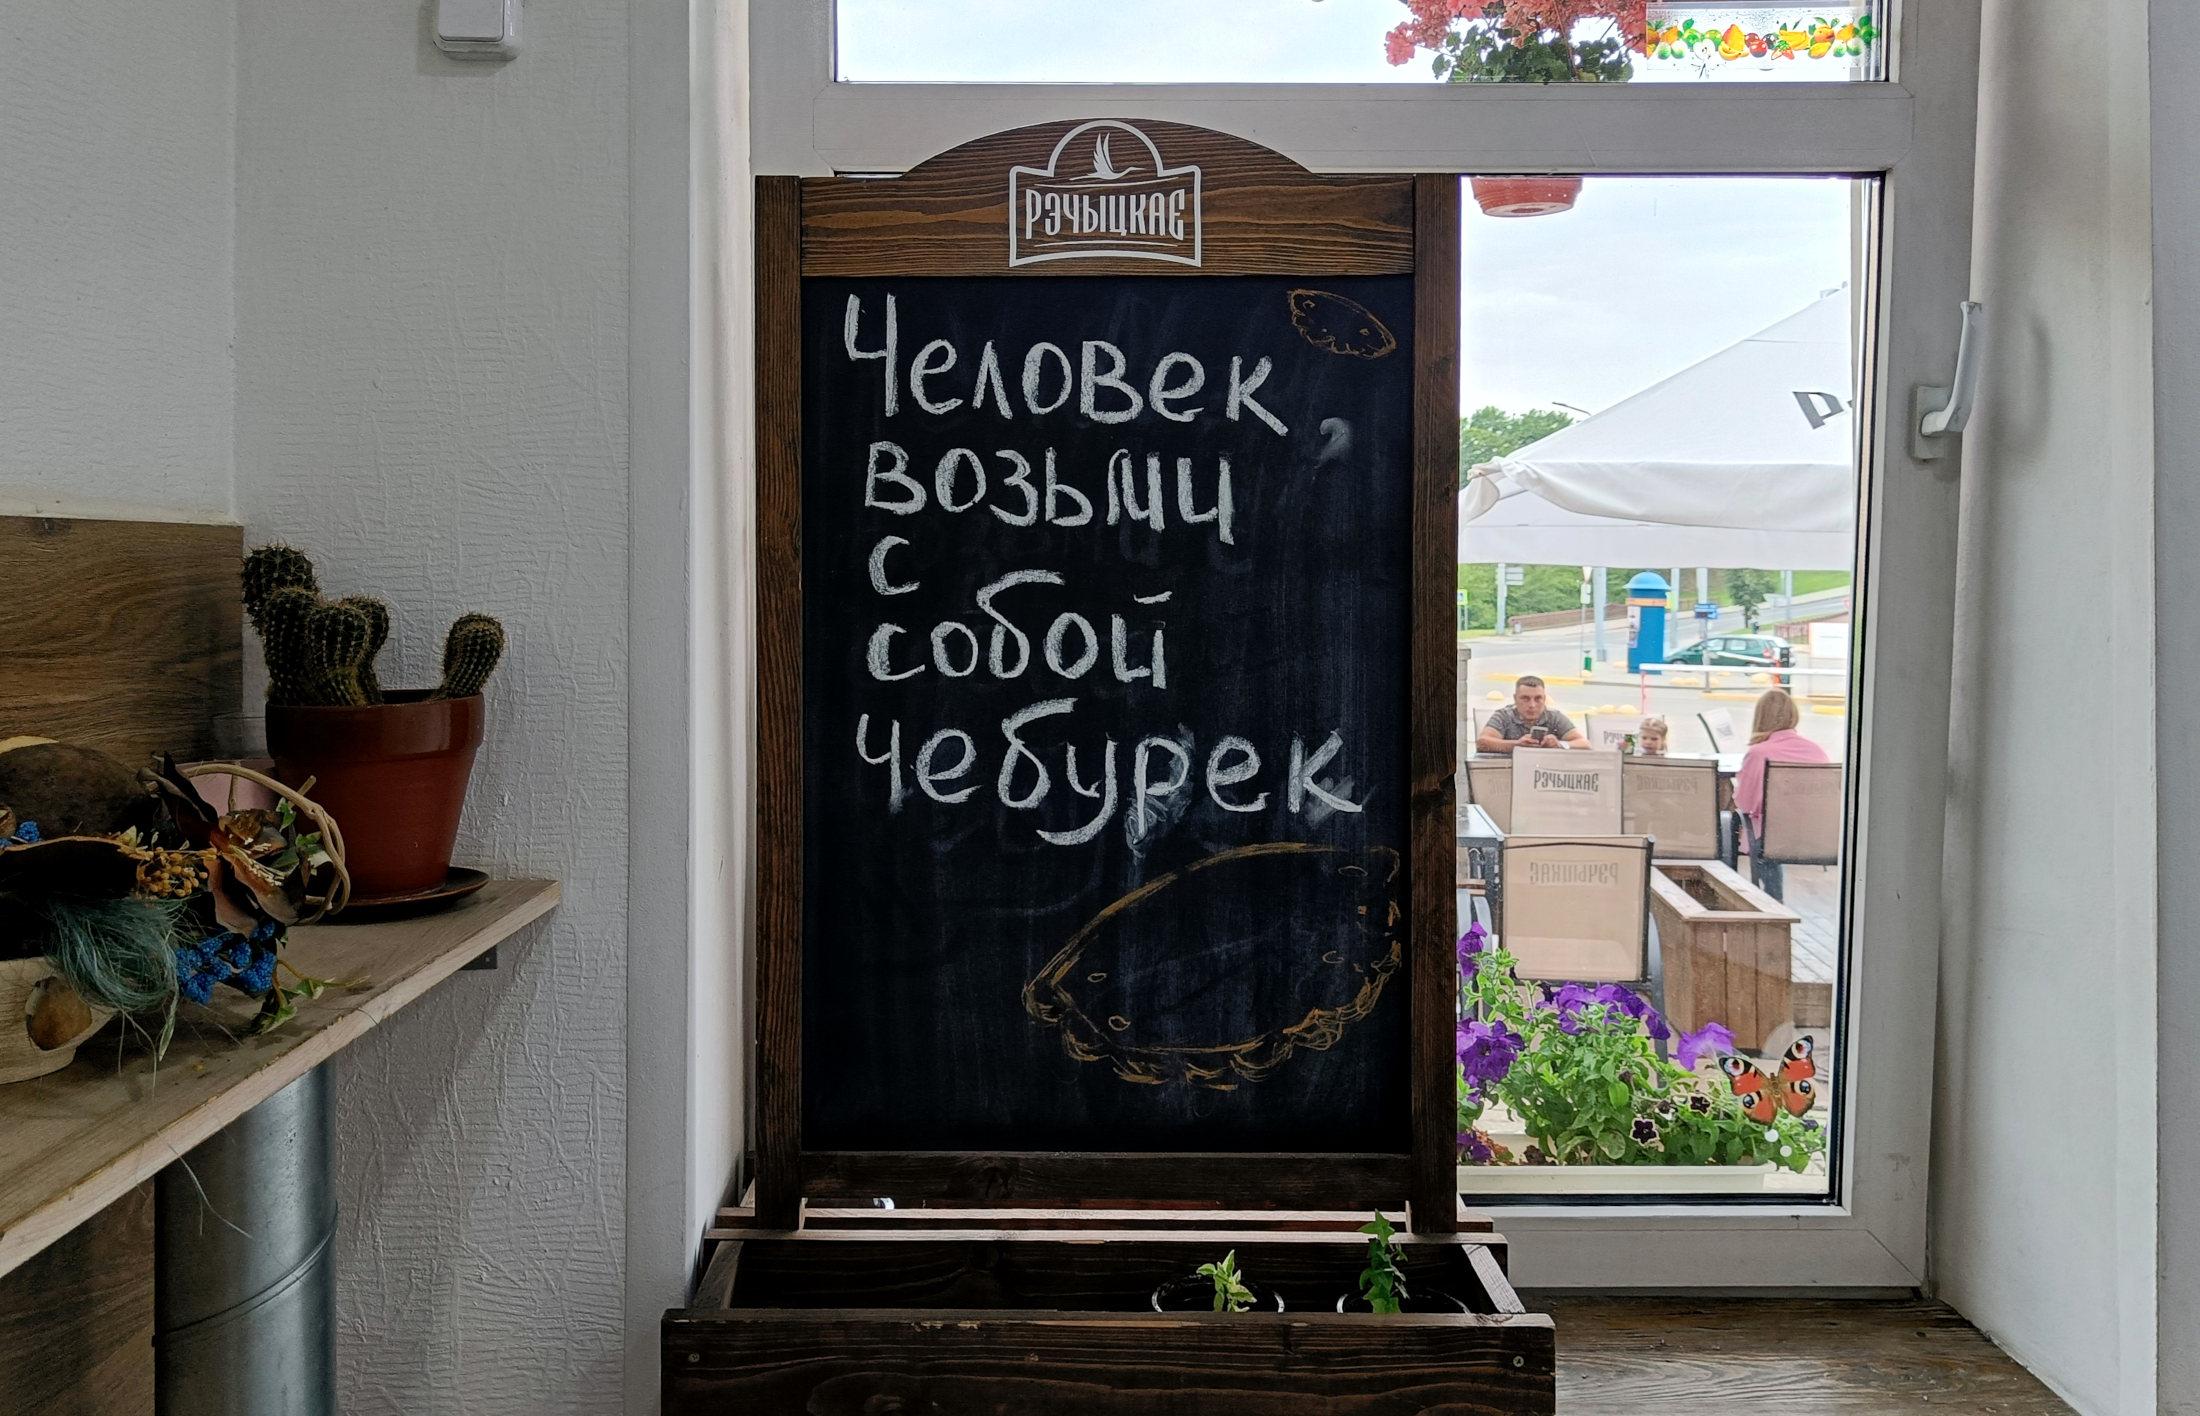 РЭЧЫЦКАЕ
Человек,
возьми
с
собой
чебурек
РЭЧЫЦКАЕ
РЭЧЫЦКАЕ
РЭЧЫЦКАЕ